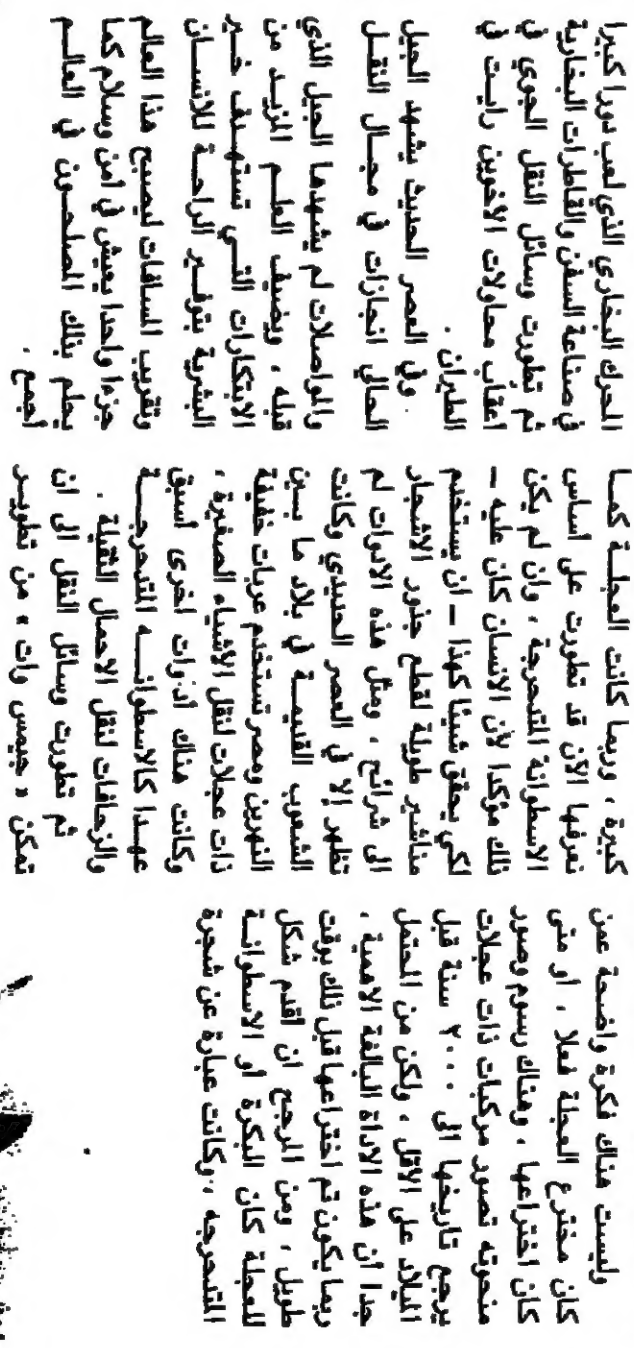 وليست هناك فكرة واضحة عمن
كان مخترع العجلة فعلا ، او متى
كان اختراعها ، وهناك رسوم وصور
منحوته تصور مركبات ذات عجلات
يرجع تاريخها الى ٢٠٠٠ سنة قبل
الميلاد على الأقل ، ولكن من المحتمل
جدا أن هذه الاداة البالغة الاهمية ،
ربما يكون تم اختراعها قبل ذلك بوقت
طويل ، ومن المرجع ان أقدم شكل
للعجلة كان البكرة أو الاسطوانـة
المتدحرجه ، وكانت عبارة عن شجرة
كبيرة ، وربما كانت العجلـة كمـا
نعرفها الآن قد تطورت على اساس
الاسطوانة المتدحرجة ، وان لم يكن
ذلك مؤكدا لأن الانسان كان عليه ـ
لكي يحقق شيئا كهذا ـ ان يستخدم
مناشير طويلة لقطع جذور الاشجار
الى شرائح ، ومثل هذه الادوات لم
تظهر إلا في العصر الحديدي وكانت
الشعوب القديمـة في بلاد ما بـين
النهرين ومصر تستخدم عربات خفيفة
ذات عجلات لنقل الأشياء الصغيرة ،
وكانت هناك أدوات اخرى أسبق
عهـدا كالاسطوانـه المتدحرجـة
والزحافات لنقل الاحمال الثقيلة .
ثم تطورت وسائل النقل الى ان
تمكن « جيمس وات » من تطويـر
المحرك البخاري الذي لعب دورا كبيرا
في صناعة السفن والقاطرات البخارية
ثم تطورت وسائل النقل الجوي في
اعقاب محاولات الاخوين رايـت في
الطيران .
وفي العصر الحديث يشهد الجيل
الحالي انجازات في مجـال النقـل
والمواصلات لم يشهدها الجيل الذي
قبله ، ويضيف العلـم المزيـد من
الابتكارات التـي تستهـدف خـير
البشرية بتوفـير الراحـة للانسـان
وتقريب المسافات ليصبح هذا العالم
جزءا واحدا يعيش في امن وسلام كما
يحلم بذلك المصلحـون في العالـم
أجمع .